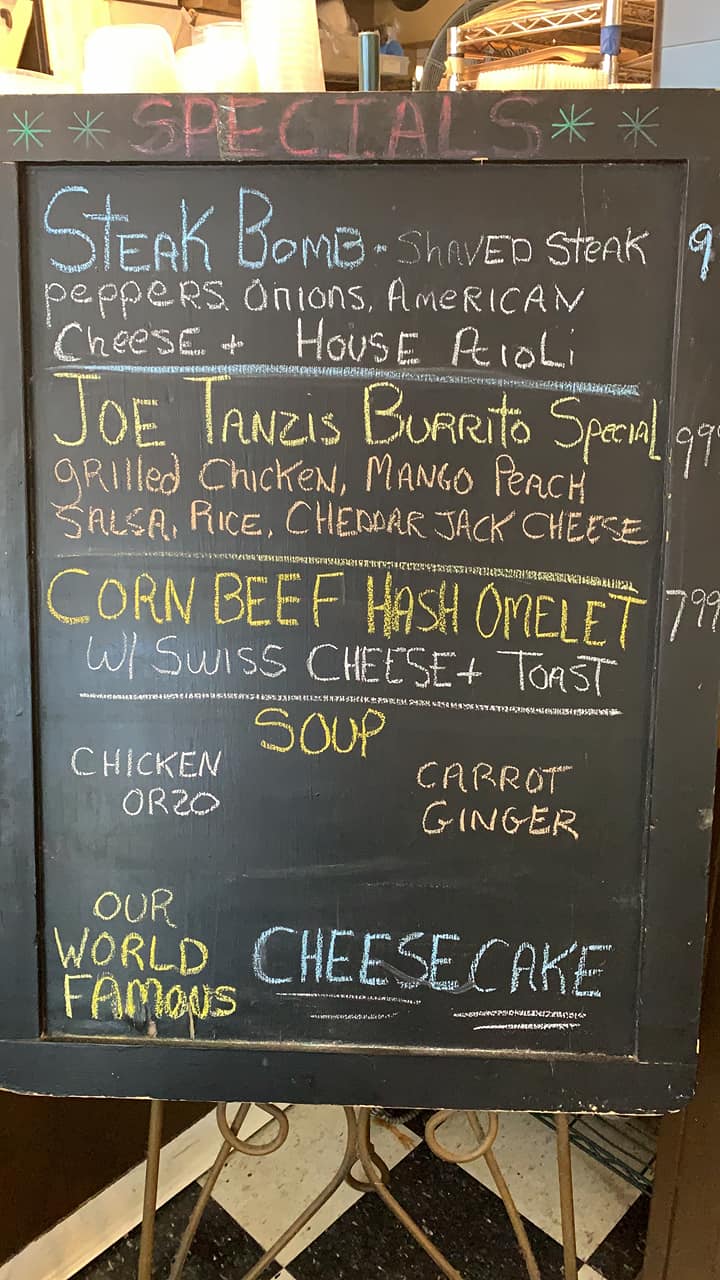 * * SPECIALS * *
STEAK BOMB - SHAVED STEAK 9
PEPPERS, ONIONS, AMERICAN
CHEESE + HOUSE AIOLI
JOE TANZIS BURRITO SPECIAL 999
GRILLED CHICKEN, MANGO PEACH
SALSA, RICE, CHEDDAR JACK CHEESE
CORN BEEF HASH OMELET 799
W/ SWISS CHEESE + TOAST
SOUP
CHICKEN
ORZO
CARROT
GINGER
OUR
WORLD
FAMOUS
CHEESECAKE